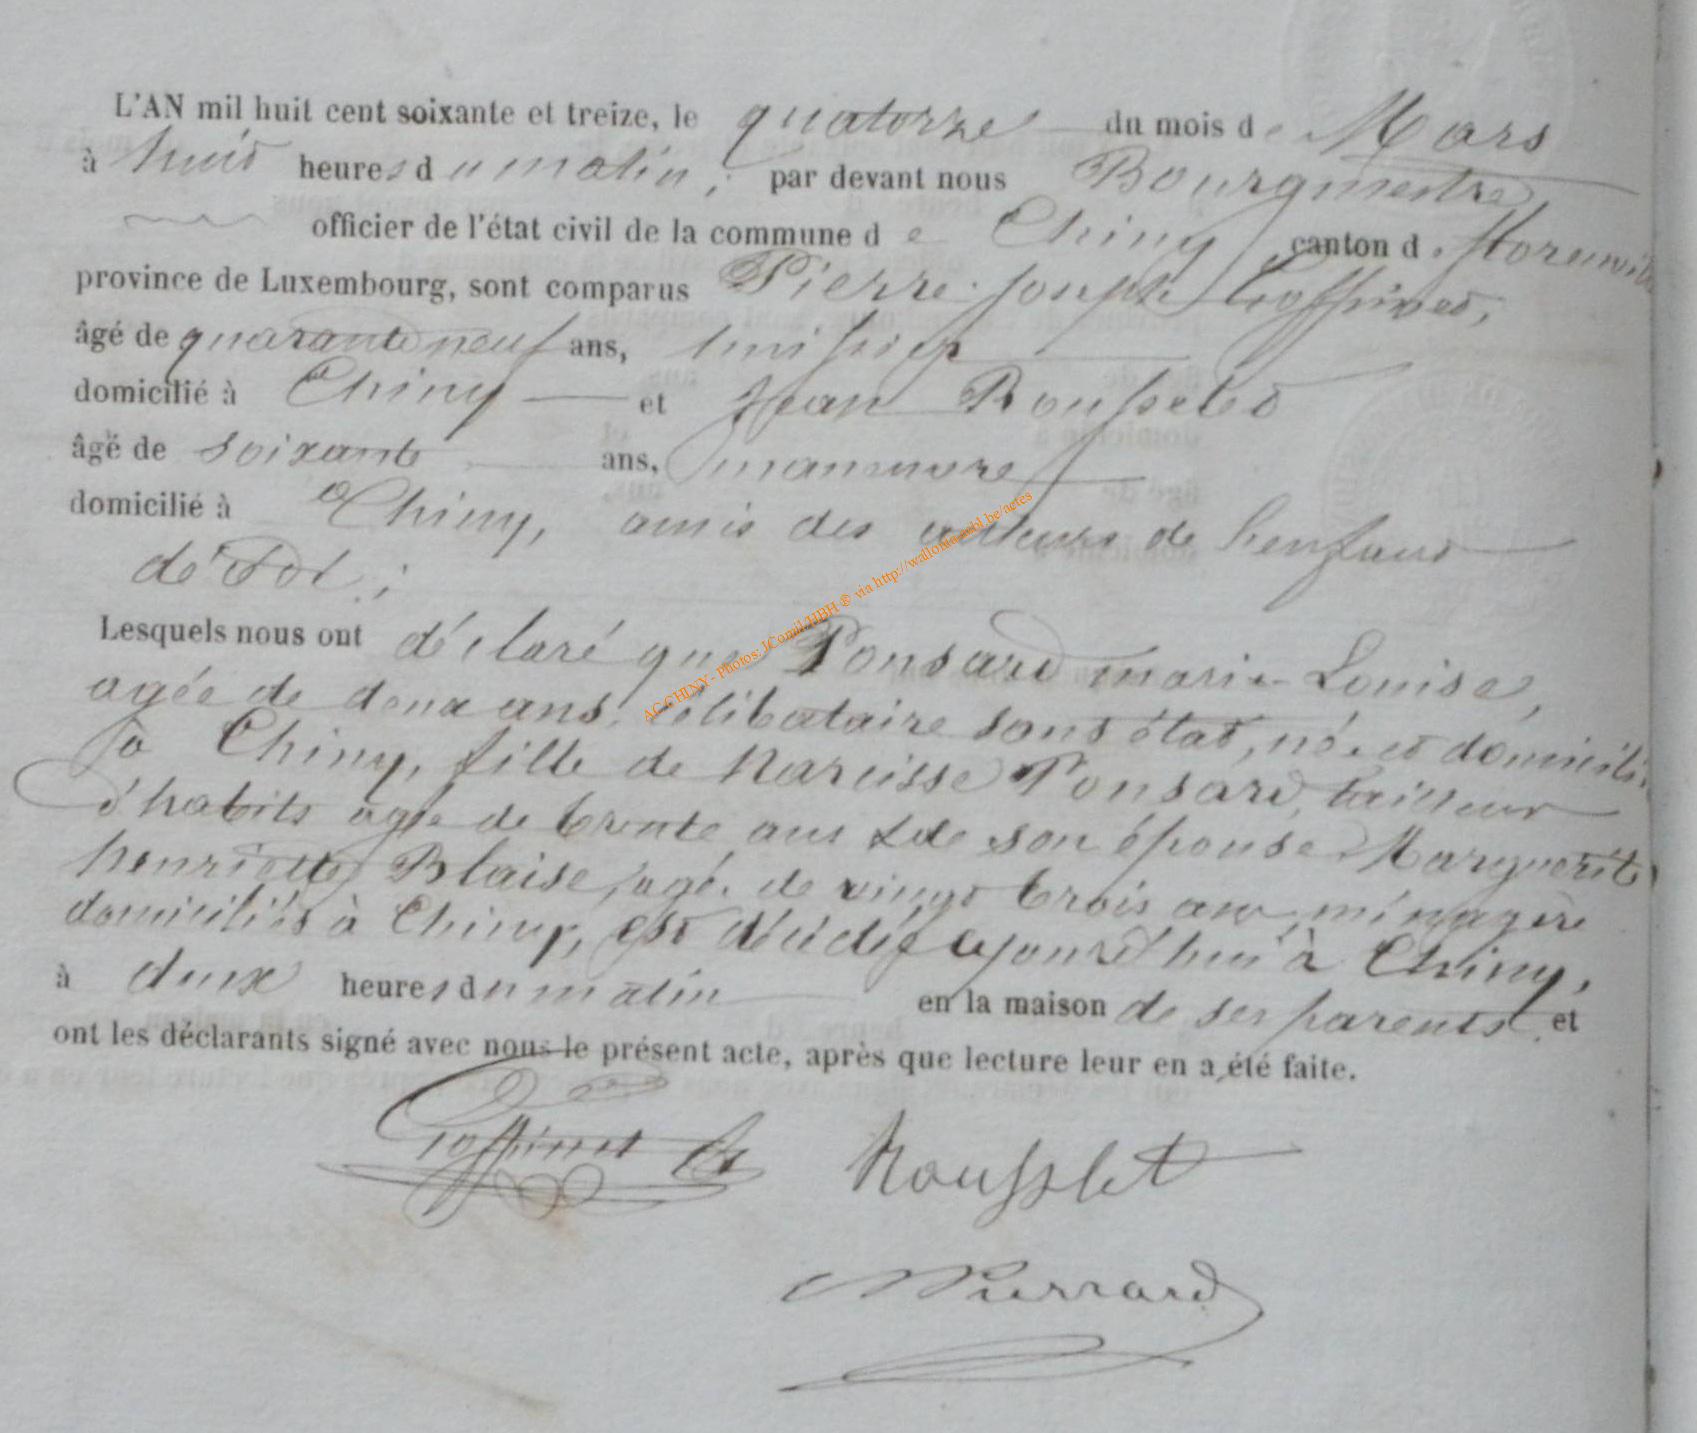 L'AN mil huit cent soixante et treize, le quatorze du mois de Mars
à huit heures du matin, par devant nous Bourgmestre
officier de l'état civil de la commune de Chiny canton de Florenville
province de Luxembourg, sont comparus Pierre-Joseph Goffinet,
âgé de quarante neuf ans, huissier
domicilié à Chiny et Jean Rousselet
âgé de soixante ans, manœuvre
domicilié à Chiny, amis des auteurs de l'enfant
Lesquels nous ont déclaré que Ponsard marie-Louise,
agée de deux ans, célibataire sans état, née et domicilié
à Chiny, fille de Narcisse Ponsard, tailleur
d'habits agé de trente ans & de son épouse Marguerite
henriette Blaise, agée de vingt trois ans, ménagère
domiciliés à Chiny, est décédée aujourd'hui à Chiny,
à deux heures du matin en la maison de ses parents et
ont les déclarants signé avec nous le présent acte, après que lecture leur en a été faite.
Goffinet Rousslet
Pierrard
AC CHINY - Photos: JComil HBH ® via http://wallonia-asbl.be/actes